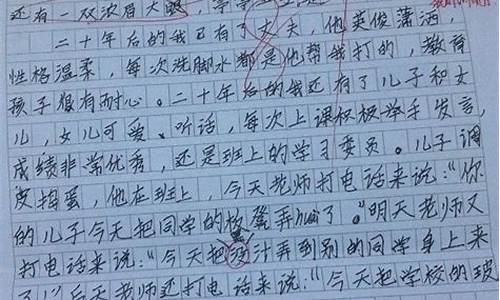 还有一双浓眉大眼,
二十年后的我已有了丈夫,他英俊潇洒,
性格温柔,每次洗脚水都是他帮我打的,教育
孩子很有耐心。二十年后的我还有了儿子和女
儿,女儿可爱、听话,每次上课积极举手发言,
成绩非常优秀,还是班上的学习委员。儿子调
皮捣蛋,他在班上,今天老师打电话来说:“你
的儿子今天把同学的板凳弄huai了。”明天老师又
打电话来说:“今天把汁弄到别的同学身上来
了。”后天老师还打电话来说:“今天把学校的玻